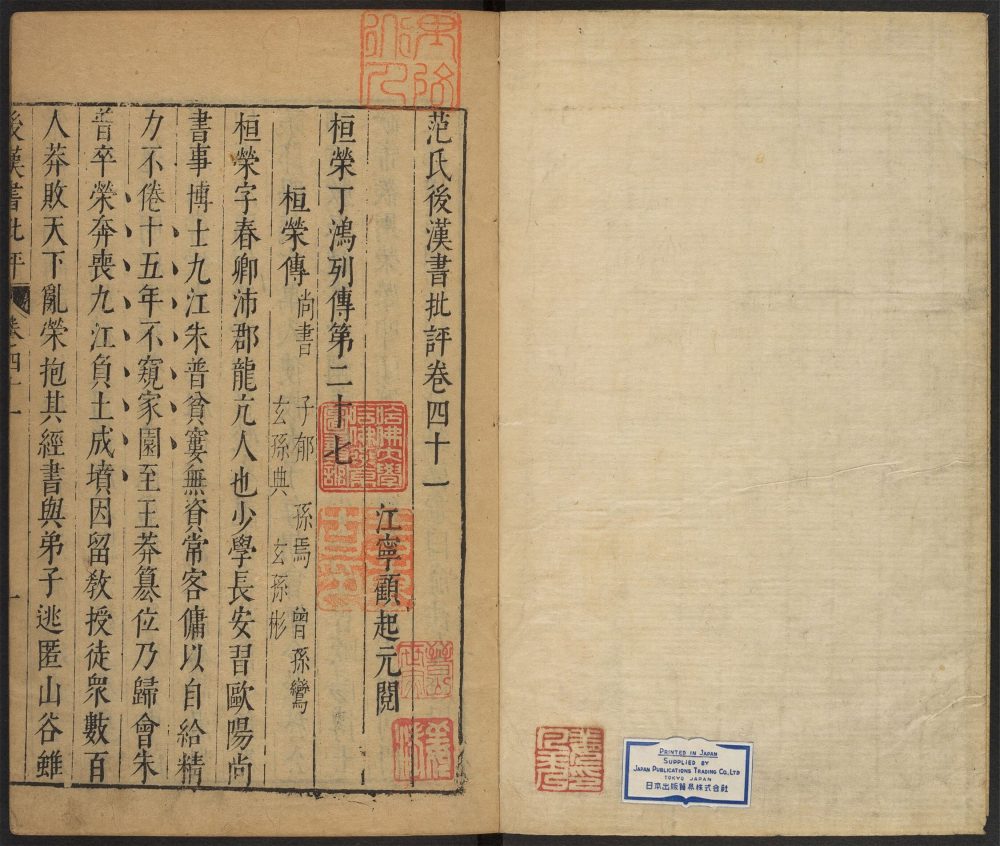 范氏後漢書批評卷四十一
江寧顧起元閱
桓榮丁鴻列傳第二十七
桓榮傳 尚書 子郁 孫焉 曾孫鸞
玄孫典 玄孫彬
桓榮字春卿沛郡龍亢人也少學長安習歐陽尚
書事博士九江朱普貧窶無資常客傭以自給精
力不倦十五年不窺家園至王莽篡位乃歸會朱
普卒榮奔喪九江負土成墳因留敎授徒衆數百
人莽敗天下亂榮抱其經書與弟子逃匿山谷雖
後漢書批評 卷四十一 一
哈佛大學
PRINTED IN JAPAN
SUPPLIED BY
JAPAN PUBLICATIONS TRADING CO., LTD
TOKYO JAPAN
日本出版貿易株式会社